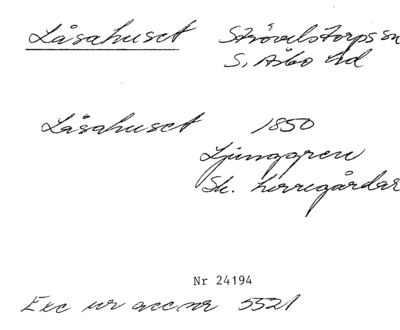 Låsahuset Strövelstorps sn
S. Åsbo hd
Låsahuset 1850
Ljunggren
Sk. herregårdar
Nr 24194
Exc ur acc nr 5521